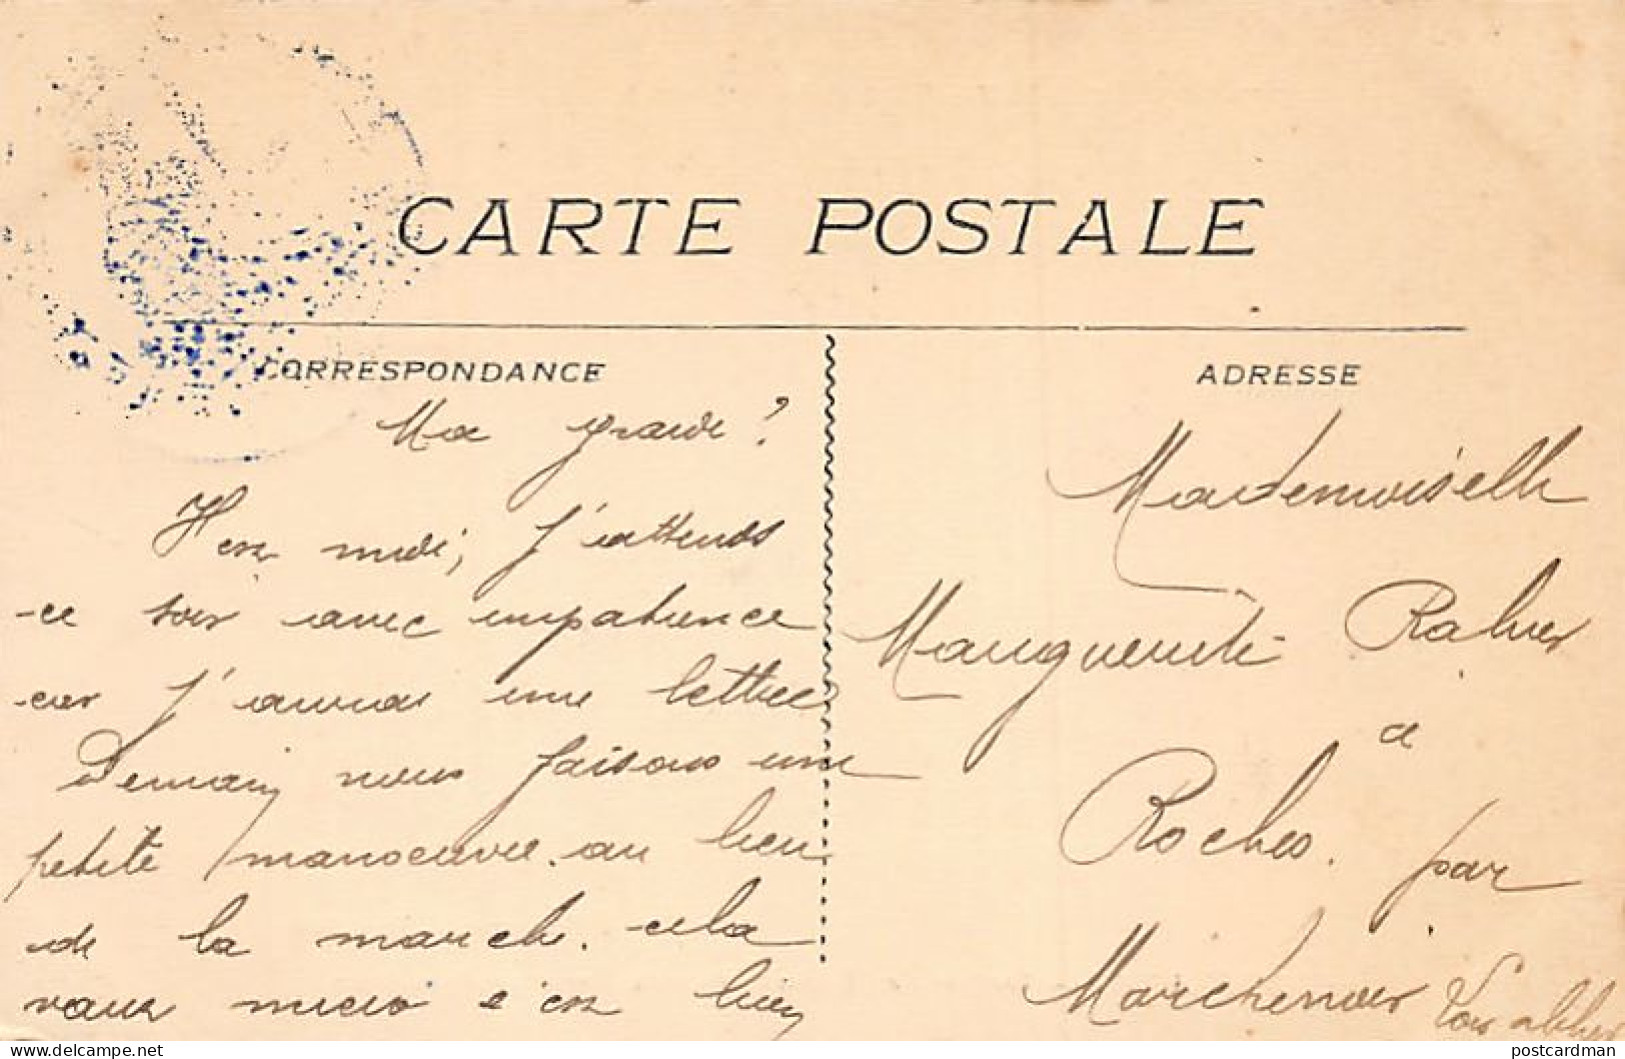 CARTE POSTALE
CORRESPONDANCE
Ma grande ?
midi, J'attends
ce soir avec impatience
car J'aurai une lettre
Demain nous faisons une
petite manoeuvre. au lieu
de la marche. cela
vaux mieux c'est bien
ADRESSE
Mademoiselle
Marguerite
a
Roches. par
Marchenoir
Loir
postcardman